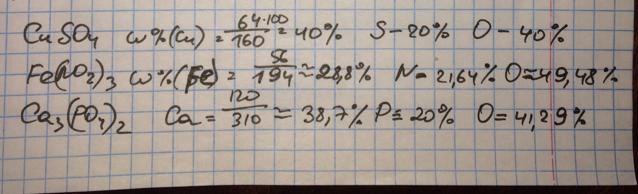 CuSO4 w%(Cu) = 64·100/160 = 40% S - 20% O - 40%
Fe(NO2)3 w%(Fe) = 56/194 ≈ 28,8% N - 21,64% O ≈ 49,48%
Ca3(PO4)2 Ca = 120/310 ≈ 38,7% P ≈ 20% O = 41,29%